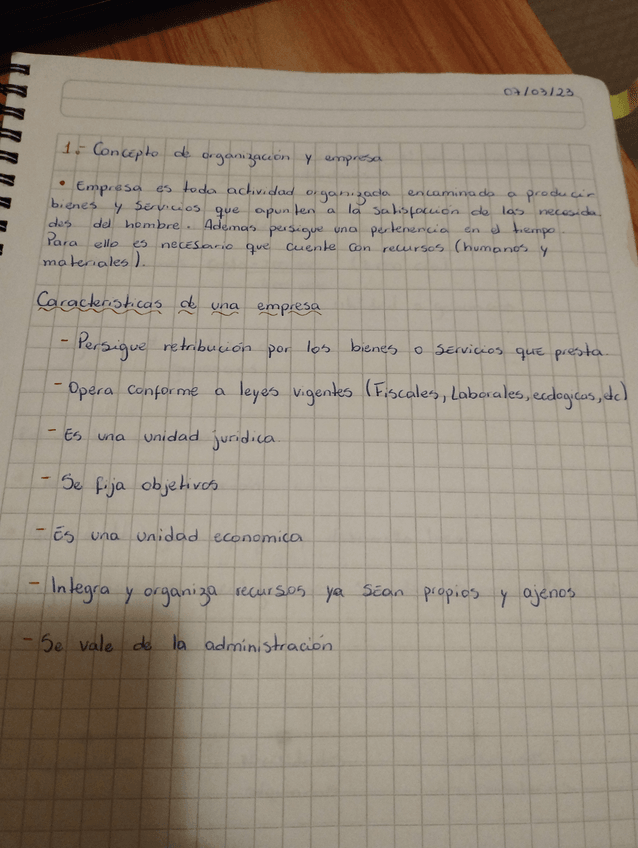 07/03/23
1.- Concepto de organización y empresa
• Empresa es toda actividad organizada encaminada a producir
bienes y servicios que apunten a la satisfacción de las necesida
des del hombre. Ademas persigue una pertenencia en el tiempo.
Para ello es necesario que cuente con recursos (humanos y
materiales).
Caracteristicas de una empresa
- Persigue retribución por los bienes o servicios que presta.
- Opera conforme a leyes vigentes (Fiscales, Laborales, ecologicas, etc)
- Es una unidad juridica.
- Se fija objetivos
- Es una unidad economica
- Integra y organiza recursos ya sean propios y ajenos
- Se vale de la administración